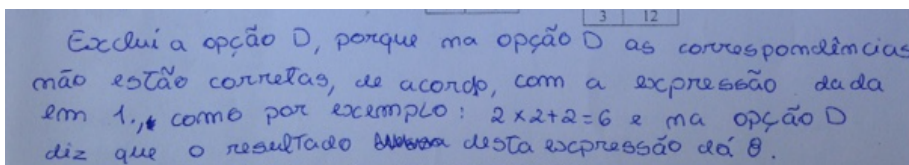 3 12
Excluí a opção D, porque na opção D as correspondências
não estão corretas, de acordo, com a expressão dada
em 1., como por exemplo: 2 x 2 + 2 = 6 e na opção D
diz que o resultado desta expressão dá 8.